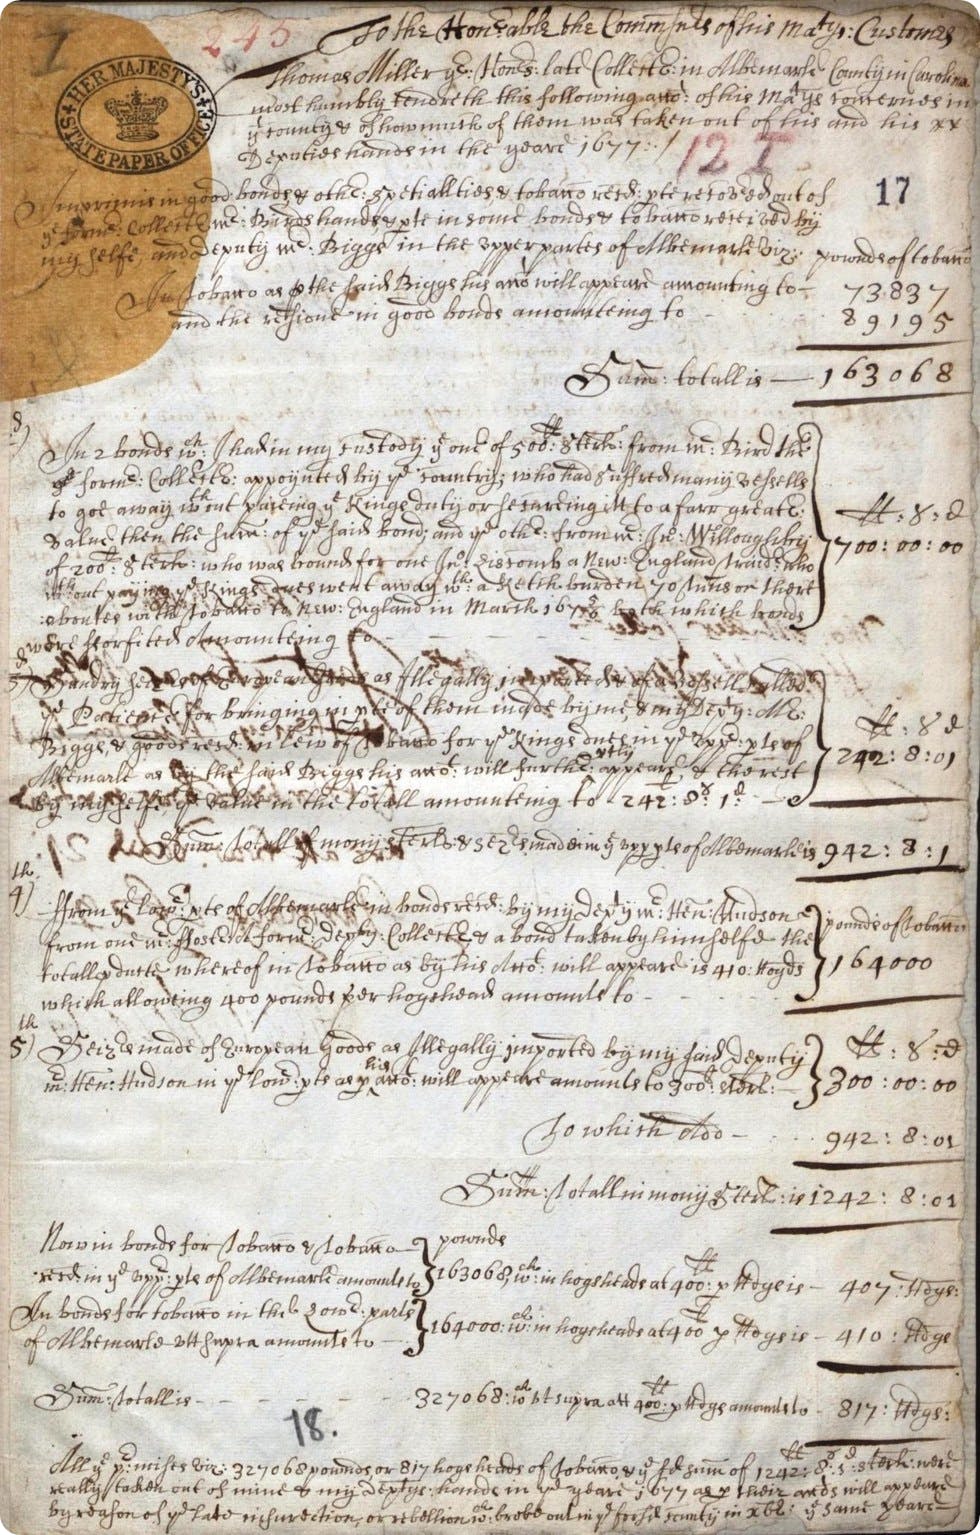 7
245
To the Honorable the Commrs of his Matys: Customes
HER MAJESTY'S STATE PAPER OFFICE
Thomas Miller ye: Kings: late Collectr: in Albemarle County in Carolina
most humbly tendreth this following acco: of his Matys concernes in
ye county & of how much of them was taken out of his and his
Deputies hands in the yeare 1677: /
121
17
Inprimis in good bonds & othe: spetiallties & tobacco recd: pte received out of
ye form: Collectr mr: Birds hands & pte in some bonds & tobacco received by
my selfe and deputy mr: Biggs in the upper partes of Albemarle viz:
pownds of tobacco
In Tobacco as p the said Biggs his acco will appeare amounting to – 73837
and the in good bonds amounteing to 89195
Summ: totall is — 163068
In 2 bonds wch: I had in my custody ye one of 500: ll Sterl: from mr: Bird the
form: Collectr: appoynted by ye country; who had suffred many vessells
to goe away without paieing ye Kings duty or secureing itt to a farr greate:
value then the summ: of ye said bond; and ye othe: from mr: Jno: Willoughby
of 200: ll Sterl: who was bound for one Jno: Liscomb a New: England trader who
without paying ye Kings dues went away wth: a Ketch burden 70 tuns or there
aboutes with Tobacco to New: England in March 167 both which bonds
were fforfited Amounteing to – – – –
ll : S : d
700 : 00 : 00
3d)
Sundry of European Goods as Illegally imported & of a vessell called
ye Patience for bringing in pte of them made by me, & my Depty: Mr:
Biggs, & goods recd: in liew of Tobacco for ye Kings dues in ye Upp: pts of
Albemarle as by the said Biggs his acco: will furthe: appeare, & the rest
by my selfe ye value in the totall amounteing to – 242: 8s: 1d –
ll : S : d
242 : 8 : 01
Summ: Totall of mony Sterl: & made in ye upp pts of Albemarle is 942 : 8 : 1
4th)
From ye Lowr: pts of Albemarle in bonds recd: by my Depty mr: Hen: Hudson
from one mr: form: Depty: Collectr & a bond taken by himselfe the
totall whereof in Tobacco as by his Acco: will appeare is 410: Hogds
which alloweing 400 pounds per hogshead amounts to –
pounds of tobacco
164000
5th)
Seizrs made of European Goods as Illegally imported by my said Deputy
mr: Hen: Hudson in ye Lowr: pts as p his acco: will appeare amounts to 300: ll Sterl: –
ll : S : d
300 : 00 : 00
To which Add – 942 : 8 : 01
Summ: Totall in mony Sterl: is 1242 : 8 : 01
Now in bonds for Tobacco & Tobacco
recd: in ye Upp: pts of Albemarle amounts to
pownds
163068: wch: in hogsheads at 400: ll p Hdge is – 407: Hdgs:
In bonds for tobacco in the Lowr: parts
of Albemarle utt supra amounts to –
164000: wch: in hogsheads at 400 ll p Hdge is – 410 : Hdgs
Summ: Totall is – – – – 327068: wch ut supra att 400: ll p Hdgs amounts to – 817: Hdgs:
18.
All ye pr:mises viz: 327068 pounds or 817 hogsheads of Tobacco, & ye sd summ of 1242: ll 8s: 1d: sterl: were
really taken out of mine & my Deptys: hands in ye yeare 1677 as p their accts will appeare
by reason of ye late insurection, or rebellion wch: broke out in ye forsd county in Xbr: ye same yeare